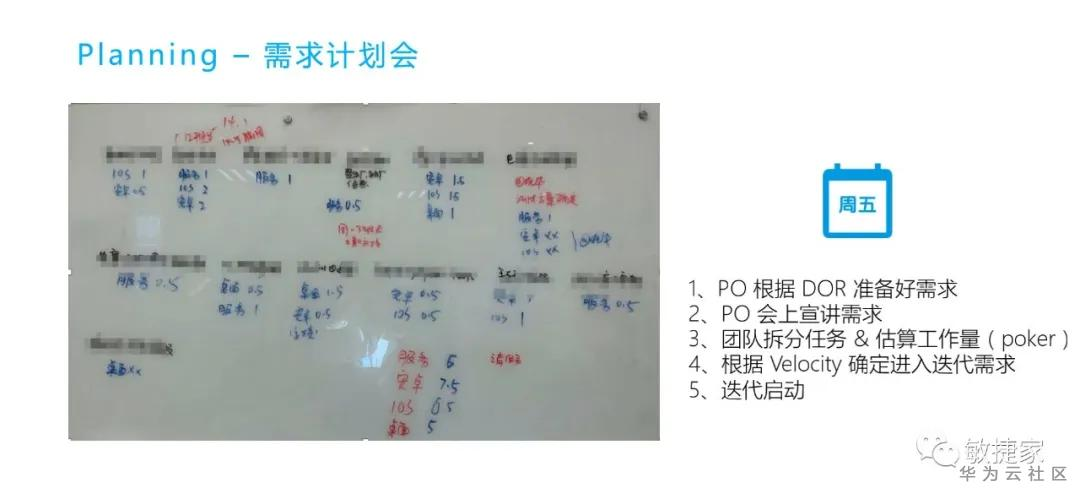 Planning – 需求计划会
14.1
IOS 1
安卓 0.5
服务 1
IOS 2
安卓 2
服务 1
服务 0.5
安卓 1.5
IOS 1.5
桌面 1
服务 1
安卓 xx
IOS xx
服务 0.5
桌面 0.5
服务 1
桌面 1.5
安卓 0.5
安卓 0.5
IOS 0.5
IOS 1
服务 0.5
桌面 xx
服务 6
安卓 7.5
IOS 6.5
桌面 5
周五
1、PO 根据 DOR 准备好需求
2、PO 会上宣讲需求
3、团队拆分任务 & 估算工作量（poker）
4、根据 Velocity 确定进入迭代需求
5、迭代启动
敏捷家
华为云社区